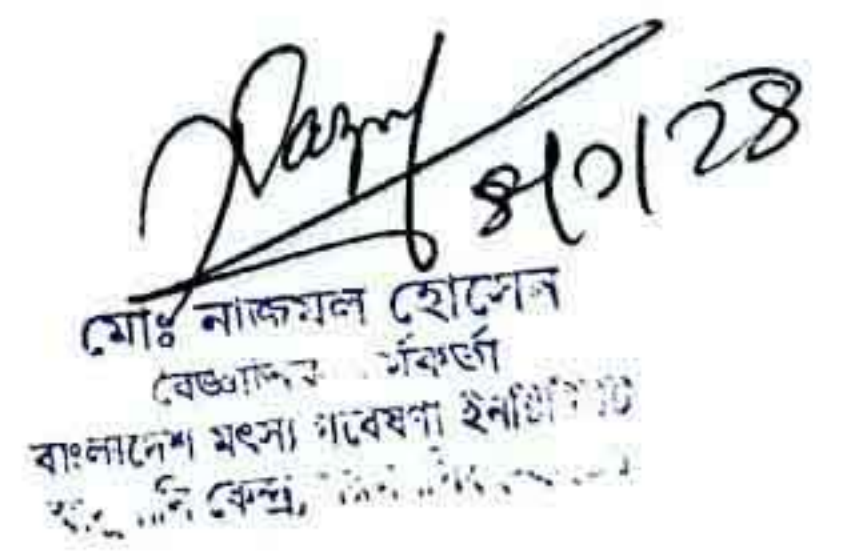 Nazmul
৪/০/২৪
মোঃ নাজমুল হোসেন
বৈজ্ঞানিক কর্মকর্তা
বাংলাদেশ মৎস্য গবেষণা ইনস্টিটিউট
কেন্দ্র,